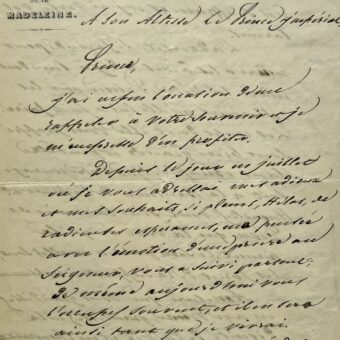 MADELEINE.
A Son Altesse Le Prince impérial
Prince,
j'ai enfin l'occasion de me
rappeler à votre Souvenir et je
m'empresse d'en profiter.
Depuis le jour en juillet
où je vous adressai mes adieux
et mes souhaits, si pleins, hélas, de
radieuses espérances, ma pensée
avec l'émotion d'une prière au
Seigneur, vous a suivi partout;
de même aujourd'hui vous
l'occupez souvent, et il en sera
ainsi tant que je vivrai.